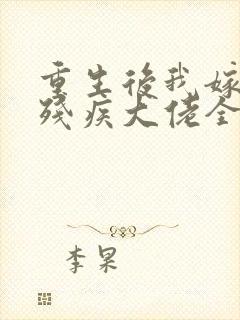 重生後我嫁
殘疾大佬全
李杲